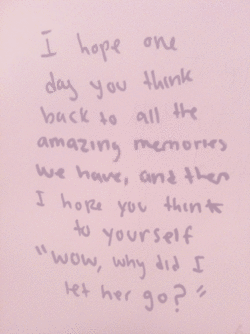 I hope one
day you think
back to all the
amazing memories
we have, and then
I hope you think
to yourself
"wow, why did I
let her go?"